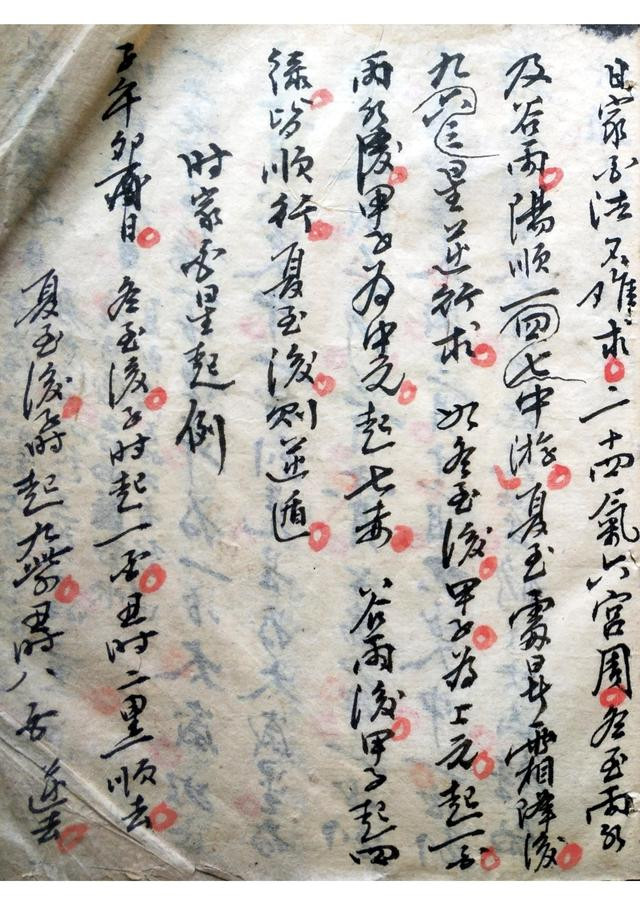 日家白法不难求二十四氣六宮周冬至雨水
及谷雨陽順一四七中游夏至處暑霜降後
九六三星逆行求 如冬至後甲子為上元起一白
雨水後甲子为中元起七赤 谷雨後甲子起四
绿皆順行夏至後则逆遁
时家白星起例
子午卯酉日 冬至後子时起一白丑时二黑順去
夏至後子时起九紫丑时八白逆去